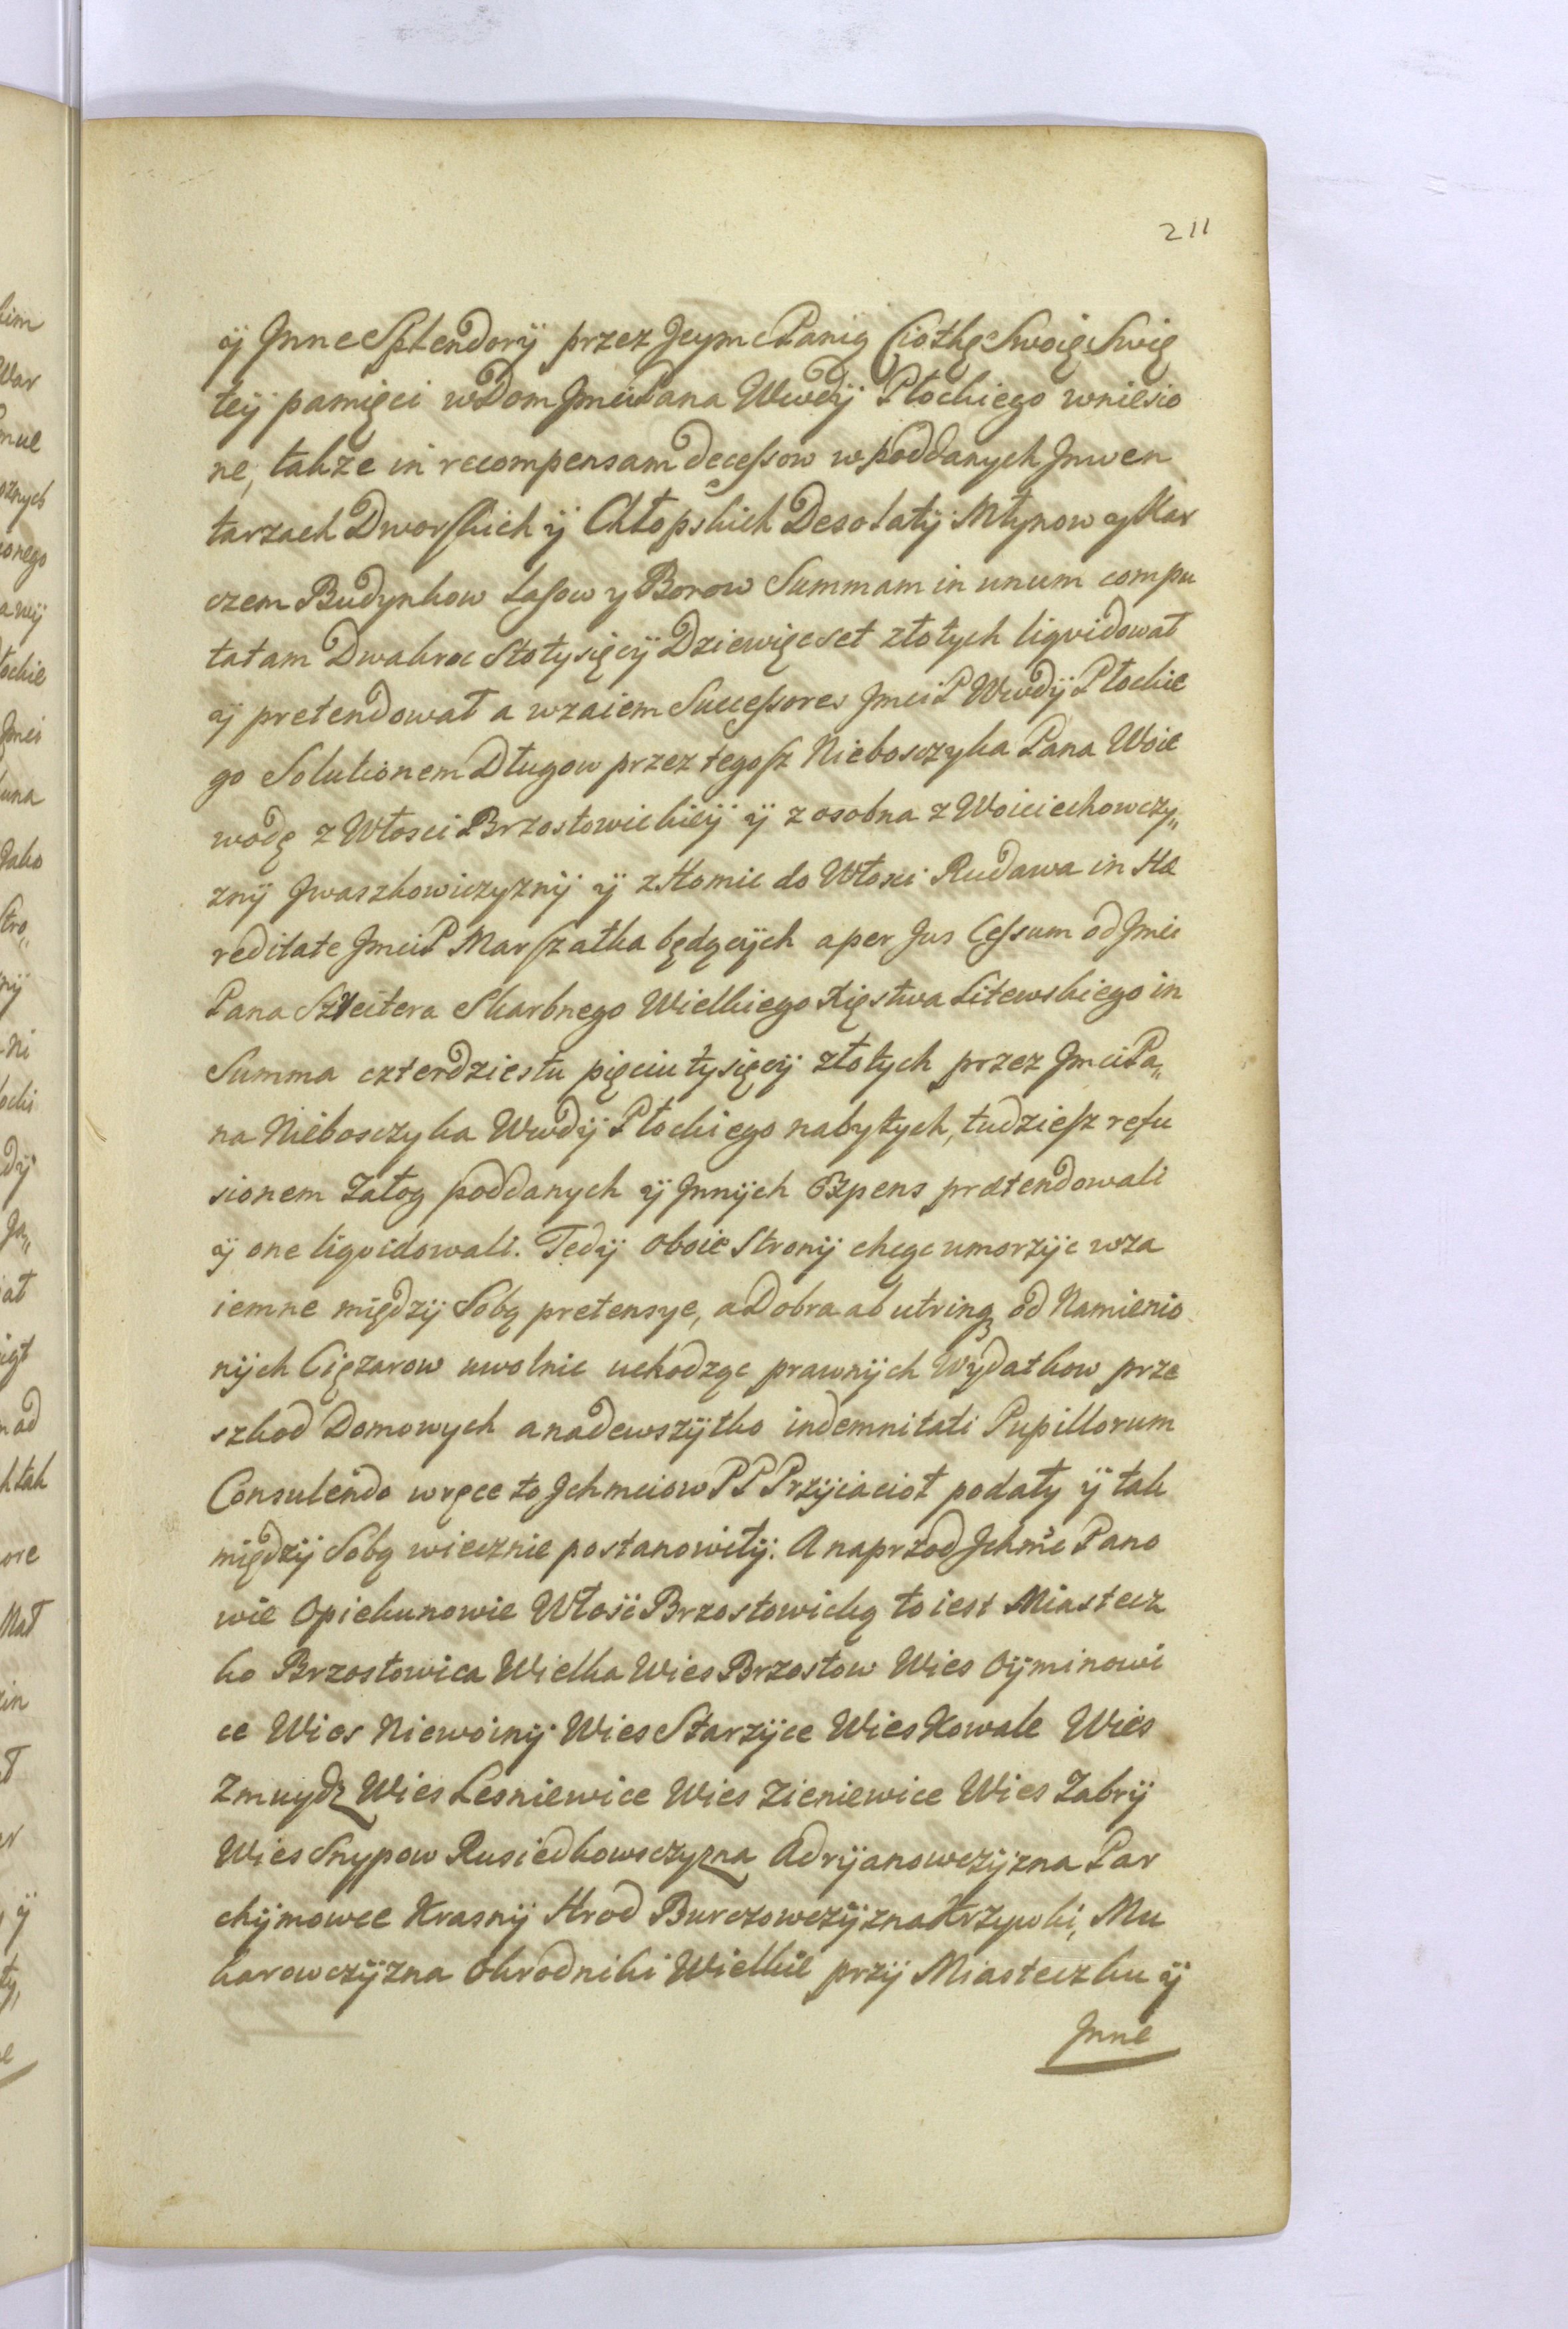 211
ÿ Jnne Splendorÿ przez Jeymc Panią Ciotkę Swoię Swię
teÿ pamięci w Dom Jmci Pana Wwdÿ Płockiego wniesio
ne, także in recompensam decessow w poddanych Jnwen
tarzach Dworskich ÿ Chłopskich Desolatÿ Młynow ÿ Kar
czem Budynkow Lasow y Borow Summam in unum compu
tatam Dwakroc Stotysięcÿ Dziewięcset złotych liqvidował
ÿ pretendował a wzaiem Successores Jmci P Wwdÿ Płockie
go Solutionem Długow przez tegosz Nieboszczyka Pana Woie
wodę z Włosci Brzostowickieÿ ÿ z osobna z Woiciechowczy„
znÿ Jwaszkowiczyznÿ ÿ z Homic do Włosci Rudawa in Hæ
reditate Jmci P Marszałka będącÿch a per Jus Cessum od Jmci
Pana Szreitera Skarbnego Wielkiego Xięstwa Litewskiego in
Summa czterdziestu pięciu tysięcÿ złotych przez Jmci Pa„
na Nieboszczyka Wwdÿ Płockiego nabytych, tudziesz refu
sionem Załog poddanych ÿ Jnnÿch Expens prætendowali
ÿ one liqvidowali. Tedÿ oboie Stronÿ chcąc umorzÿc wza
iemne międzÿ Sobą pretensye, a Dobra ab utrinq3 od Namienio
nÿch Ciężarow uwolnic uchodząc prawnÿch Wÿdatkow prze
szkod Domowych a nadewszÿtko indemnitati Pupillorum
Consulendo w ręce to Jchmciow PP Przÿiacioł podały ÿ tak
międzÿ Sobą wiecznie postanowiłÿ. A naprzod Jchmc Pano
wie Opiekunowie Włość Brzostowicką to iest Miastecz
ko Brzostowica Wielka Wies Brzostow Wies Oÿminowi
ce Wies Niewoinÿ Wies Starzÿce Wies Kowale Wies
Zmuydz Wies Lesniewice Wies Zieniewice Wies Zabrÿ
Wies Snypow Rusiedkowsczyzna Adrÿanowczÿzna Par
chÿmowce Krasnÿ Hrod Burczowczÿzna Krzywki, Mu
karowczÿzna Ohrodniki Wielkie przÿ Miasteczku ÿ
Jnne